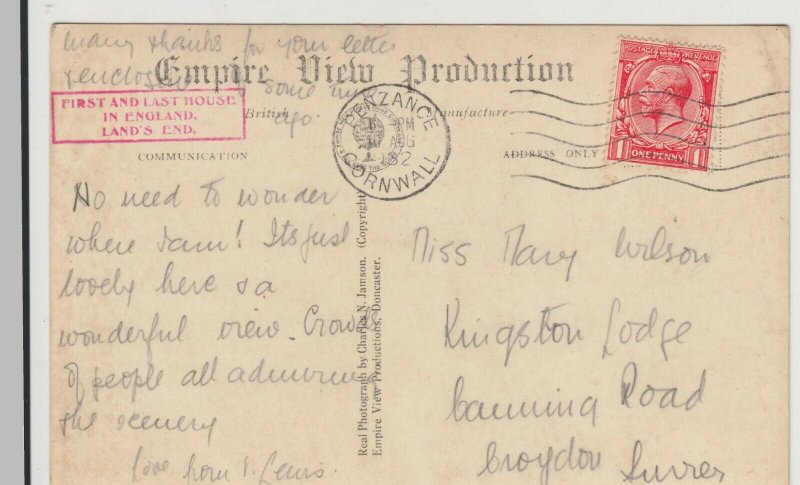 many thanks for your letter
Empire View Production
& enclosure some
ago.
British Manufacture
FIRST AND LAST HOUSE
IN ENGLAND.
LAND'S END.
COMMUNICATION
ADDRESS ONLY
PENZANCE
PM
AUG
32
CORNWALL
POSTAGE REVENUE
1 ONE PENNY 1
No need to wonder
where I am! Its just
lovely here & a
wonderful view. Crowds
of people all admiring
the scenery
Love from Lewis.
Real Photograph by Charles N. Jamson. (Copyright)
Empire View Productions, Doncaster.
Miss Mary Wilson
Kingston Lodge
Canning Road
Croydon Surrey